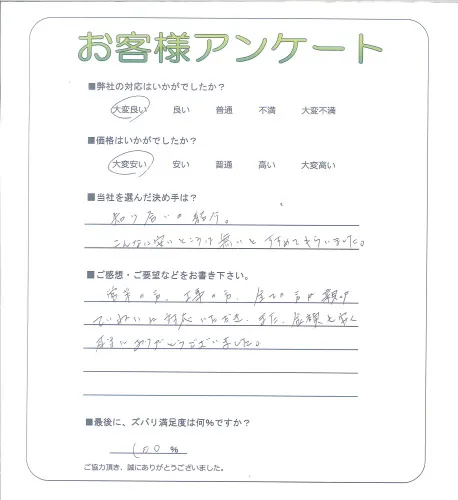 お客様アンケート
■弊社の対応はいかがでしたか?
大変良い 良い 普通 不満 大変不満
■価格はいかがでしたか?
大変安い 安い 普通 高い 大変高い
■当社を選んだ決め手は?
知り合いの紹介。
こんなに安いところは無いと すすめてもらいました。
■ご感想・ご要望などをお書き下さい。
営業の方、工事の方、全ての方が親切
ていねいに対応いただき、また、金額も安く
本当にありがとうございました。
■最後に、ズバリ満足度は何%ですか?
100 %
ご協力頂き、誠にありがとうございました。